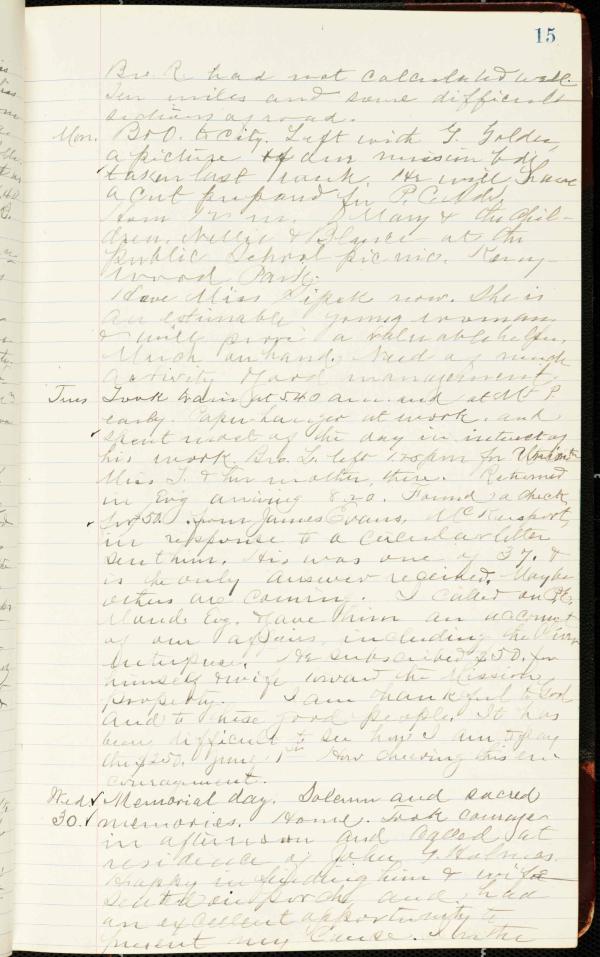 15
Bro. R. had not calculated well.
Ten miles and some difficult
sections of road.
Mon. Bro. to city. Left with G. Golder,
a picture of our mission bdg
taken last week. He will have
a cut prepared for P. C. Adv.
Home Mary & the chil-
dren, Nellie & Blance at the
public School picnic. Kenny-
wood Park.
Have Miss Lipek now. She is
an estimable young woman
& will prove a valuable helper.
Much on hand. Need of much
activity & good management.
Tues Took train at 540 a.m. and at Mt P.
early. Paper hanger at work, and
spent most of the day in interest of
his work. Bro. L. left 1.25 pm for
Miss T. & her mother, there. Returned
in Evg arriving 8.20. Found a check
for $50. from James Evans, McKeesport,
in response to a circular letter
sent him. His was one of 37, &
is the only answer received. Maybe
others are coming. I called on
Evg. Gave him an account
of our affairs, including the
enterprise. He subscribed $50. for
himself & wife toward the Mission
property. I am thankful to God
and to these good people. It has
been difficult to see how I am to pay
the $250. June 1st How cheering this en-
couragement.
Wed. Memorial day. Solemn and sacred
30. memories. Home. Took courage
in afternoon and called at
residence of John G. Holmes.
Happy in finding him & wife
seated on porch, and had
an excellent opportunity to
present my Cause. In the